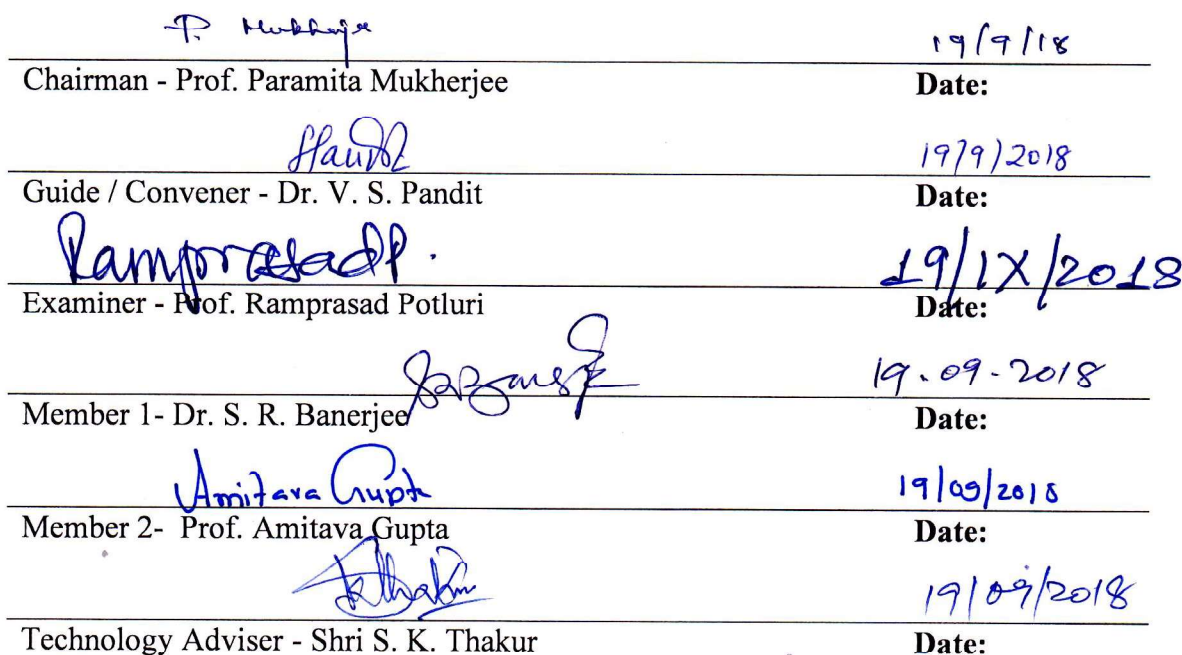 P. Mukherjee 19/9/18
Chairman - Prof. Paramita Mukherjee Date:
19/9/2018
Guide / Convener - Dr. V. S. Pandit Date:
RamprasadP. 19/IX/2018
Examiner - Prof. Ramprasad Potluri Date:
19.09-2018
Member 1- Dr. S. R. Banerjee Date:
Amitava Gupta 19/09/2018
Member 2- Prof. Amitava Gupta Date:
19/09/2018
Technology Adviser - Shri S. K. Thakur Date: